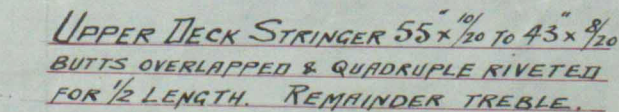 UPPER DECK STRINGER 55" x 10/20 TO 43" x 8/20
BUTTS OVERLAPPED & QUADRUPLE RIVETED
FOR 1/2 LENGTH. REMAINDER TREBLE.